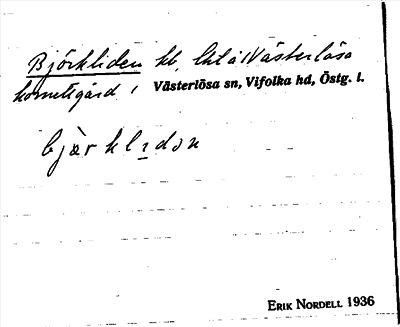 Björkliden hb, lht å Västerlösa
kornettsgård, Västerlösa sn, Vifolka hd, Östg. l.
bjærklɪdɔn
ERIK NORDELL 1936